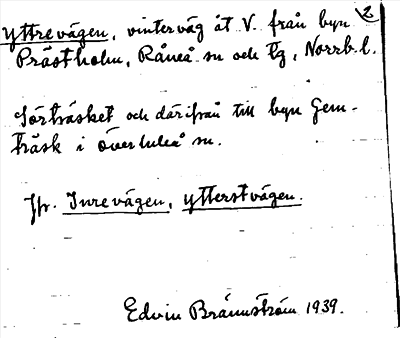 yttrevägen, vinterväg åt V. från byn 2
Prästholm, Råneå sn och tg, Norrb. l.
Sörträsket och därifrån till byn Gem-
träsk i överluleå sn.
Jfr. Inrevägen, ytterstvägen.
Edvin Brännström 1939.